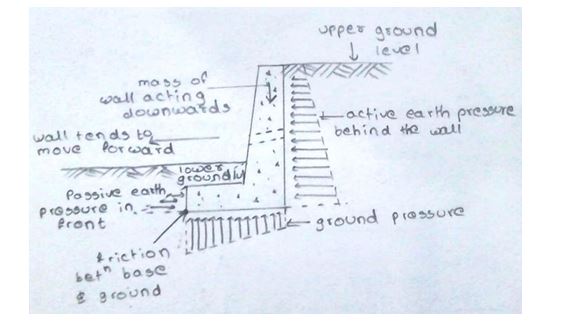 upper ground
level
mass of
wall acting
downwards
active earth pressure
behind the wall
wall tends to
move forward
lower
ground lvl
Passive earth
pressure in
front
ground pressure
friction
betn base
& ground